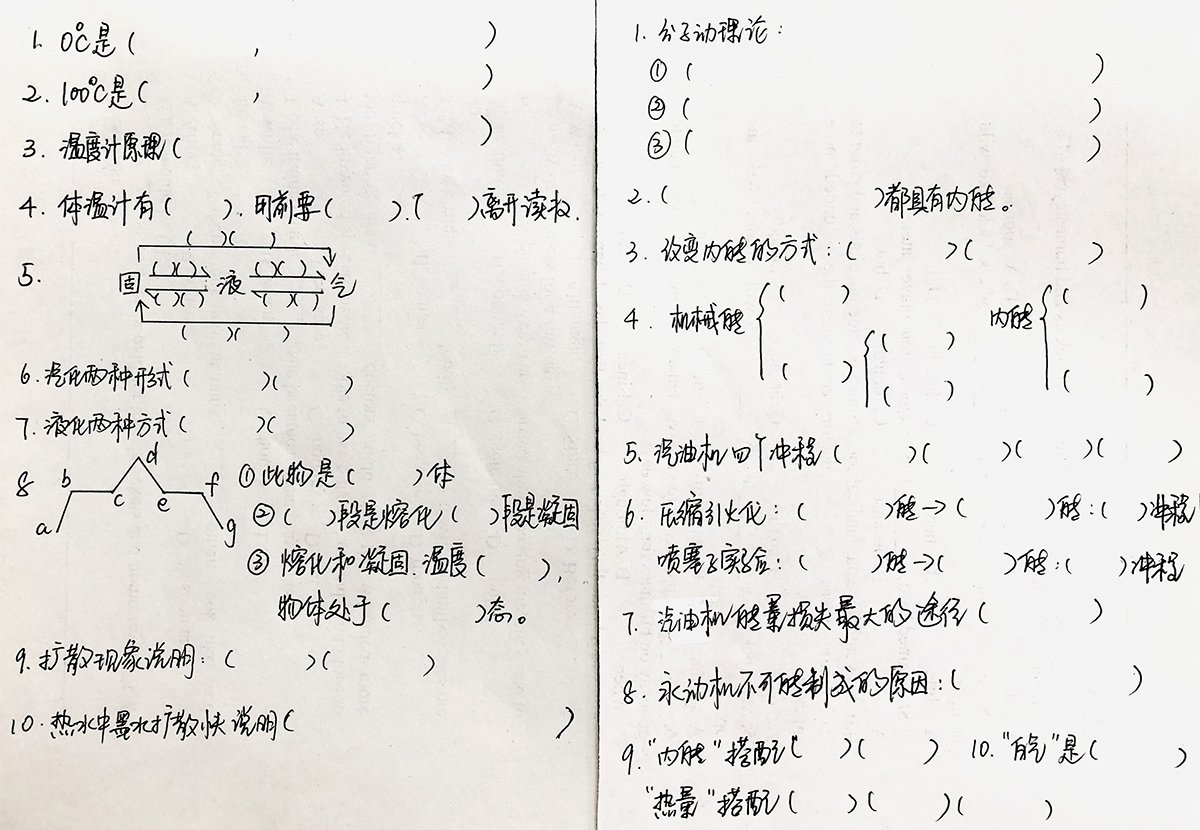 1. 0℃是(          ,          )
2. 100℃是(          ,          )
3. 温度计原理(          )
4. 体温计有(     ). 用前要(     ). (     )离开读数.
(   )(   )
5. 固 (  )(  ) 液 (  )(  ) 气
(  )(  ) (  )(  )
(   )(   )
6. 汽化两种形式(     )(     )
7. 液化两种方式(     )(     )
8 a b c d e f g
①此物是(     )体
②(   )段是熔化(   )段是凝固
③熔化和凝固.温度(     ),
物体处于(     )态。
9. 扩散现象说明:(     )(     )
10. 热水中墨水扩散快说明(          )
1. 分子动理论:
①(          )
②(          )
③(          )
2. (          )都具有内能。
3. 改变内能的方式:(     )(     )
4. 机械能 { (     ) (     ) { (     ) (     ) 内能 { (     ) (     )
5. 汽油机四个冲程(     )(     )(     )(     )
6. 压缩引火仪:(     )能→(     )能:(   )冲程
喷塞子实验:(     )能→(     )能:(   )冲程
7. 汽油机能量损失最大的途径(     )
8. 永动机不可能制成的原因:(          )
9. "内能"搭配(   )(   ) 10. "白气"是(     )
"热量"搭配(   )(   )(   )